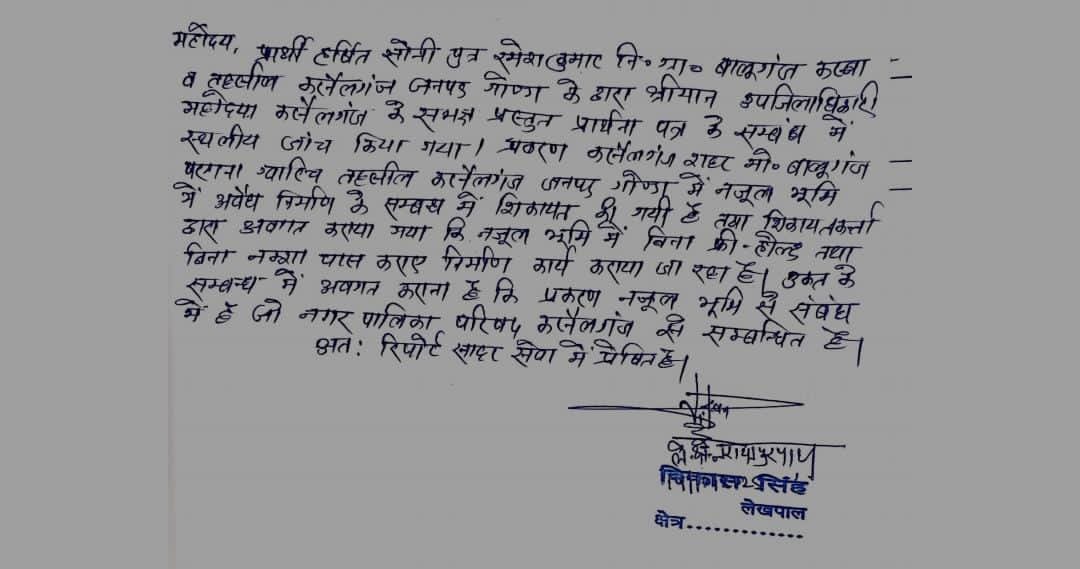 महोदय, प्रार्थी हर्षित सोनी पुत्र रमेश कुमार नि० ग्रा० बालूगंज कस्बा
व तहसील कर्नैलगंज जनपद गोण्डा के द्वारा श्रीमान उपजिलाधिकारी
महोदया कर्नैलगंज के समक्ष प्रस्तुत प्रार्थना पत्र के सम्बंध में
स्थलीय जांच किया गया। प्रकरण कर्नैलगंज शहर मो० बालूगंज
परगना ग्वारिच तहसील कर्नैलगंज जनपद गोण्डा में नजूल भूमि
में अवैध निर्माण के सम्बन्ध में शिकायत की गयी है तथा शिकायतकर्त्ता
द्वारा अवगत कराया गया कि नजूल भूमि में बिना फ्री-होल्ड तथा
बिना नक्शा पास कराए निर्माण कार्य कराया जा रहा है। उक्त के
सम्बन्ध में अवगत कराना है कि प्रकरण नजूल भूमि से संबंध
में है जो नगर पालिका परिषद कर्नैलगंज से सम्बन्धित है।
अतः रिपोर्ट सादर सेवा में प्रेषित है।
सिंह
लेखपाल
क्षेत्र..............